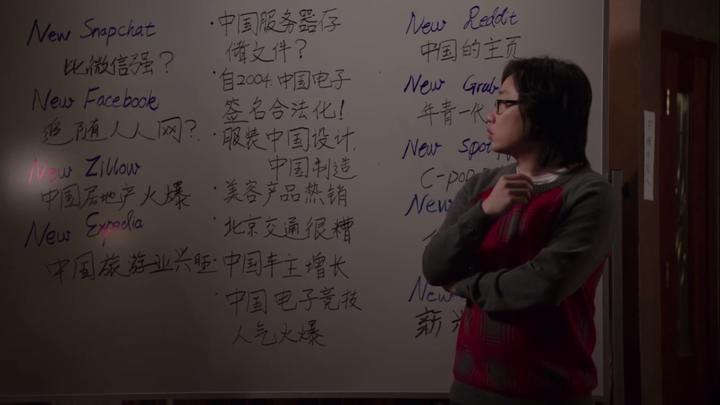 New Snapchat
比微信强？
New Facebook
追随人人网？
New Zillow
中国房地产火爆
New Expedia
中国旅游业兴旺
·中国服务器存
储文件？
·自2004.中国电子
签名合法化！
·服装中国设计，
中国制造
·美容产品热销
·北京交通很糟
·中国车主增长
·中国电子竞技
人气火爆
New Reddit
中国的主页
New
年青一代
New
C-pop
New
New
新兴